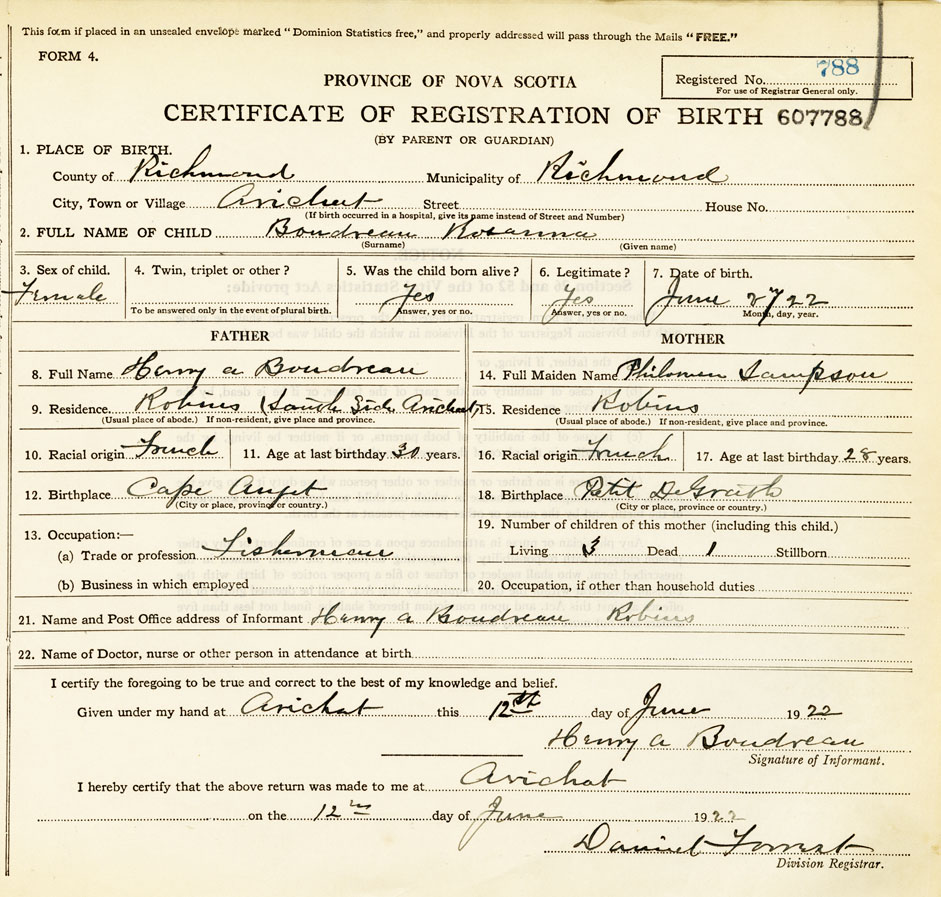 This form if placed in an unsealed envelope marked "Dominion Statistics free," and properly addressed will pass through the Mails "FREE."
FORM 4.
Registered No. 788
For use of Registrar General only.
PROVINCE OF NOVA SCOTIA
CERTIFICATE OF REGISTRATION OF BIRTH 607788
(BY PARENT OR GUARDIAN)
1. PLACE OF BIRTH.
County of Richmond Municipality of Richmond
City, Town or Village Arichat Street House No.
(If birth occurred in a hospital, give its name instead of Street and Number)
2. FULL NAME OF CHILD Boudreau Rosanna
(Surname) (Given name)
3. Sex of child. 4. Twin, triplet or other? 5. Was the child born alive? 6. Legitimate? 7. Date of birth.
Female Yes Yes June 2 / 22
To be answered only in the event of plural birth. Answer, yes or no. Answer, yes or no. Month, day, year.
FATHER MOTHER
8. Full Name Henry a Boudreau 14. Full Maiden Name Philomen Sampson
9. Residence Robins (South Side Arichat) 15. Residence Robins
(Usual place of abode.) If non-resident, give place and province. (Usual place of abode.) If non-resident, give place and province.
10. Racial origin French 11. Age at last birthday 30 years. 16. Racial origin French 17. Age at last birthday 28 years.
12. Birthplace Cape Auget 18. Birthplace Petit DeGrath
(City or place, province or country.) (City or place, province or country.)
13. Occupation:— 19. Number of children of this mother (including this child.)
(a) Trade or profession Fisherman Living 3 Dead 1 Stillborn
(b) Business in which employed 20. Occupation, if other than household duties
21. Name and Post Office address of Informant Henry a Boudreau Robins
22. Name of Doctor, nurse or other person in attendance at birth
I certify the foregoing to be true and correct to the best of my knowledge and belief.
Given under my hand at Arichat this 12th day of June 1922
Henry a Boudreau
Signature of Informant.
I hereby certify that the above return was made to me at Arichat
on the 12 day of June 1922
Daniel
Division Registrar.